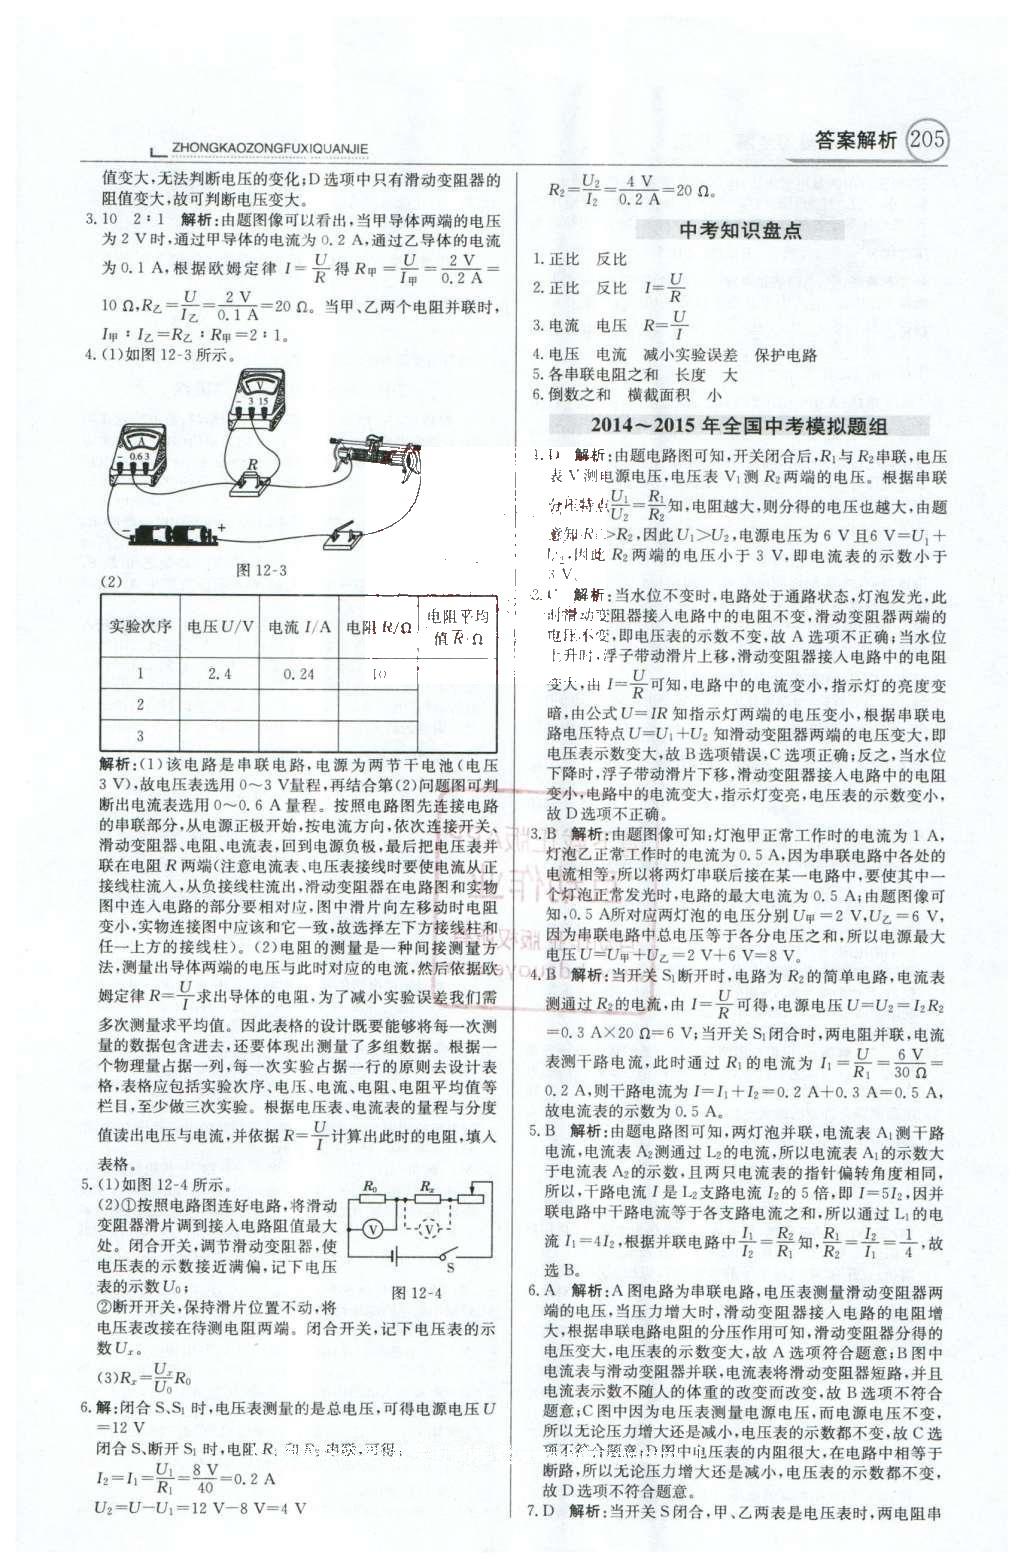 ZHONGKAOZONGFUXIQUANJIE
答案解析 205
值变大,无法判断电压的变化;D选项中只有滑动变阻器的
阻值变大,故可判断电压变大。
3. 10 2∶1 解析:由题图像可以看出,当甲导体两端的电压
为 2 V时,通过甲导体的电流为 0.2 A,通过乙导体的电流
为 0.1 A,根据欧姆定律 I=U/R 得 R甲=U/I甲=2 V/0.2 A=
10 Ω,R乙=U/I乙=2 V/0.1 A=20 Ω。当甲、乙两个电阻并联时,
I甲∶I乙=R乙∶R甲=2∶1。
4. (1)如图 12-3 所示。
V
- 3 15
A
- 0.6 3
R
- +
图 12-3
(2)
实验次序 电压U/V 电流 I/A 电阻 R/Ω 电阻平均值 R/Ω
1 2.4 0.24 10
2
3
解析:(1)该电路是串联电路,电源为两节干电池(电压
3 V),故电压表选用 0~3 V量程,再结合第(2)问题图可判
断出电流表选用 0~0.6 A 量程。按照电路图先连接电路
的串联部分,从电源正极开始,按电流方向,依次连接开关、
滑动变阻器、电阻、电流表,回到电源负极,最后把电压表并
联在电阻R两端(注意电流表、电压表接线时要使电流从正
接线柱流入,从负接线柱流出,滑动变阻器在电路图和实物
图中连入电路的部分要相对应,图中滑片向左移动时电阻
变小,实物连接图中应该和它一致,故选择左下方接线柱和
任一上方的接线柱)。(2)电阻的测量是一种间接测量方
法,测量出导体两端的电压与此时对应的电流,然后依据欧
姆定律 R=U/I求出导体的电阻,为了减小实验误差我们需
多次测量求平均值。因此表格的设计既要能够将每一次测
量的数据包含进去,还要体现出测量了多组数据。根据一
个物理量占据一列,每一次实验占据一行的原则去设计表
格,表格应包括实验次序、电压、电流、电阻、电阻平均值等
栏目,至少做三次实验。根据电压表、电流表的量程与分度
值读出电压与电流,并依据 R=U/I计算出此时的电阻,填入
表格。
5. (1)如图 12-4 所示。
(2)①按照电路图连好电路,将滑动
变阻器滑片调到接入电路阻值最大
处。闭合开关,调节滑动变阻器,使
电压表的示数接近满偏,记下电压
表的示数U₀;
R₀ Rₓ
V V
S
图 12-4
②断开开关,保持滑片位置不动,将
电压表改接在待测电阻两端。闭合开关,记下电压表的示
数Uₓ。
(3)Rₓ=Uₓ/U₀ R₀
6. 解:闭合 S、S₁ 时,电压表测量的是总电压,可得电源电压U
=12 V
闭合 S、断开 S₁ 时,电阻 R₁ 和 R₂ 串联,可得:
I₂=I₁=U₁/R₁=8 V/40=0.2 A
U₂=U-U₁=12 V-8 V=4 V
R₂=U₂/I₂=4 V/0.2 A=20 Ω。
中考知识盘点
1. 正比 反比
2. 正比 反比 I=U/R
3. 电流 电压 R=U/I
4. 电压 电流 减小实验误差 保护电路
5. 各串联电阻之和 长度 大
6. 倒数之和 横截面积 小
2014~2015 年全国中考模拟题组
1. D 解析:由题电路图可知,开关闭合后,R₁与 R₂串联,电压
表 V 测电源电压,电压表 V₁测 R₂两端的电压。根据串联
分压特点U₁/U₂=R₁/R₂知,电阻越大,则分得的电压也越大,由题
意知 R₁>R₂,因此U₁>U₂,电源电压为 6 V 且6 V=U₁+
U₂,因此 R₂ 两端的电压小于 3 V,即电流表的示数小于
3 V。
2. C 解析:当水位不变时,电路处于通路状态,灯泡发光,此
时滑动变阻器接入电路中的电阻不变,滑动变阻器两端的
电压不变,即电压表的示数不变,故 A 选项不正确;当水位
上升时,浮子带动滑片上移,滑动变阻器接入电路中的电阻
变大,由 I=U/R可知,电路中的电流变小,指示灯的亮度变
暗,由公式U=IR 知指示灯两端的电压变小,根据串联电
路电压特点U=U₁+U₂ 知滑动变阻器两端的电压变大,即
电压表示数变大,故 B选项错误,C选项正确;反之,当水位
下降时,浮子带动滑片下移,滑动变阻器接入电路中的电阻
变小,电路中的电流变大,指示灯变亮,电压表的示数变小,
故 D选项不正确。
3. B 解析:由题图像可知:灯泡甲正常工作时的电流为 1 A,
灯泡乙正常工作时的电流为 0.5 A,因为串联电路中各处的
电流相等,所以将两灯串联后接在某一电路中,要使其中一
个灯泡正常发光时,电路的最大电流为 0.5 A;由题图像可
知,0.5 A所对应两灯泡的电压分别U甲=2 V,U乙=6 V,
因为串联电路中总电压等于各分电压之和,所以电源最大
电压U=U甲+U乙=2 V+6 V=8 V。
4. B 解析:当开关 S₁断开时,电路为 R₂的简单电路,电流表
测通过 R₂的电流,由 I=U/R可得,电源电压U=U₂=I₂R₂
=0.3 A×20 Ω=6 V;当开关 S₁闭合时,两电阻并联,电流
表测干路电流,此时通过 R₁ 的电流为 I₁=U/R₁=6 V/30 Ω=
0.2 A,则干路电流为 I=I₁+I₂=0.2 A+0.3 A=0.5 A,
故电流表的示数为 0.5 A。
5. B 解析:由题电路图可知,两灯泡并联,电流表 A₁测干路
电流,电流表 A₂测通过 L₂的电流,所以电流表 A₁的示数大
于电流表 A₂的示数,且两只电流表的指针偏转角度相同,
所以,干路电流 I 是 L₂支路电流 I₂的 5 倍,即 I=5I₂,因并
联电路中干路电流等于各支路电流之和,所以通过 L₁的电
流 I₁=4I₂,根据并联电路中I₁/I₂=R₂/R₁知,R₁/R₂=I₂/I₁=1/4,故
选 B。
6. A 解析:A 图电路为串联电路,电压表测量滑动变阻器两
端的电压,当压力增大时,滑动变阻器接入电路的电阻增
大,根据串联电路电阻的分压作用可知,滑动变阻器分得的
电压变大,电压表的示数变大,故 A 选项符合题意;B图中
电流表与滑动变阻器并联,电流表将滑动变阻器短路,并且
电流表示数不随人的体重的改变而改变,故 B 选项不符合
题意;C图中因为电压表测量电源电压,而电源电压不变,
所以无论压力增大还是减小,电压表的示数都不变,故 C选
项不符合题意;D图中电压表的内阻很大,在电路中相等于
断路,所以无论压力增大还是减小,电压表的示数都不变,
故 D选项不符合题意。
7. D 解析:当开关 S闭合,甲、乙两表是电压表时,两电阻串